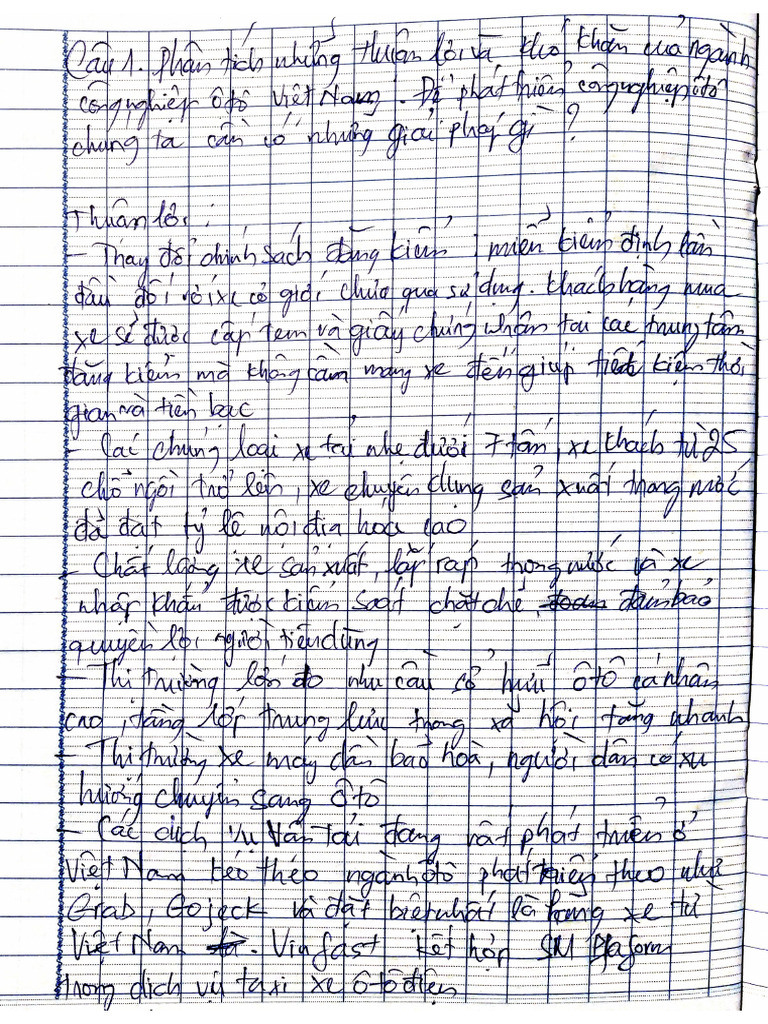 Câu 1. Phân tích những thuận lợi và khó khăn của ngành
công nghiệp ô tô Việt Nam. Để phát triển công nghiệp ô tô
chúng ta cần có những giải pháp gì?
Thuận lợi:
- Thay đổi chính sách đăng kiểm: miễn kiểm định lần
đầu đối với xe cơ giới chưa qua sử dụng. khách hàng mua
xe sẽ được cấp tem và giấy chứng nhận tại các trung tâm
đăng kiểm mà không cần mang xe đến giúp tiết kiệm thời
gian và tiền bạc
- Các chủng loại xe tải nhẹ dưới 7 tấn, xe khách từ 25
chỗ ngồi trở lên, xe chuyên dụng sản xuất trong nước
đã đạt tỷ lệ nội địa hoá cao
- Chất lượng xe sản xuất, lắp ráp trong nước và xe
nhập khẩu được kiểm soát chặt chẽ, đảm bảo
quyền lợi người tiêu dùng
- Thị trường lớn do nhu cầu sở hữu ô tô cá nhân
cao, tầng lớp trung lưu trong xã hội tăng nhanh
- Thị trường xe máy dần bão hoà, người dân có xu
hướng chuyển sang ô tô
- Các dịch vụ vận tải đang rất phát triển ở
Việt Nam kéo theo ngành ô tô phát triển theo như
Grab, Gojeck và đặt biệt nhất là hãng xe từ
Việt Nam. Vinfast kết hợp SM
trong dịch vụ taxi xe ô tô điện